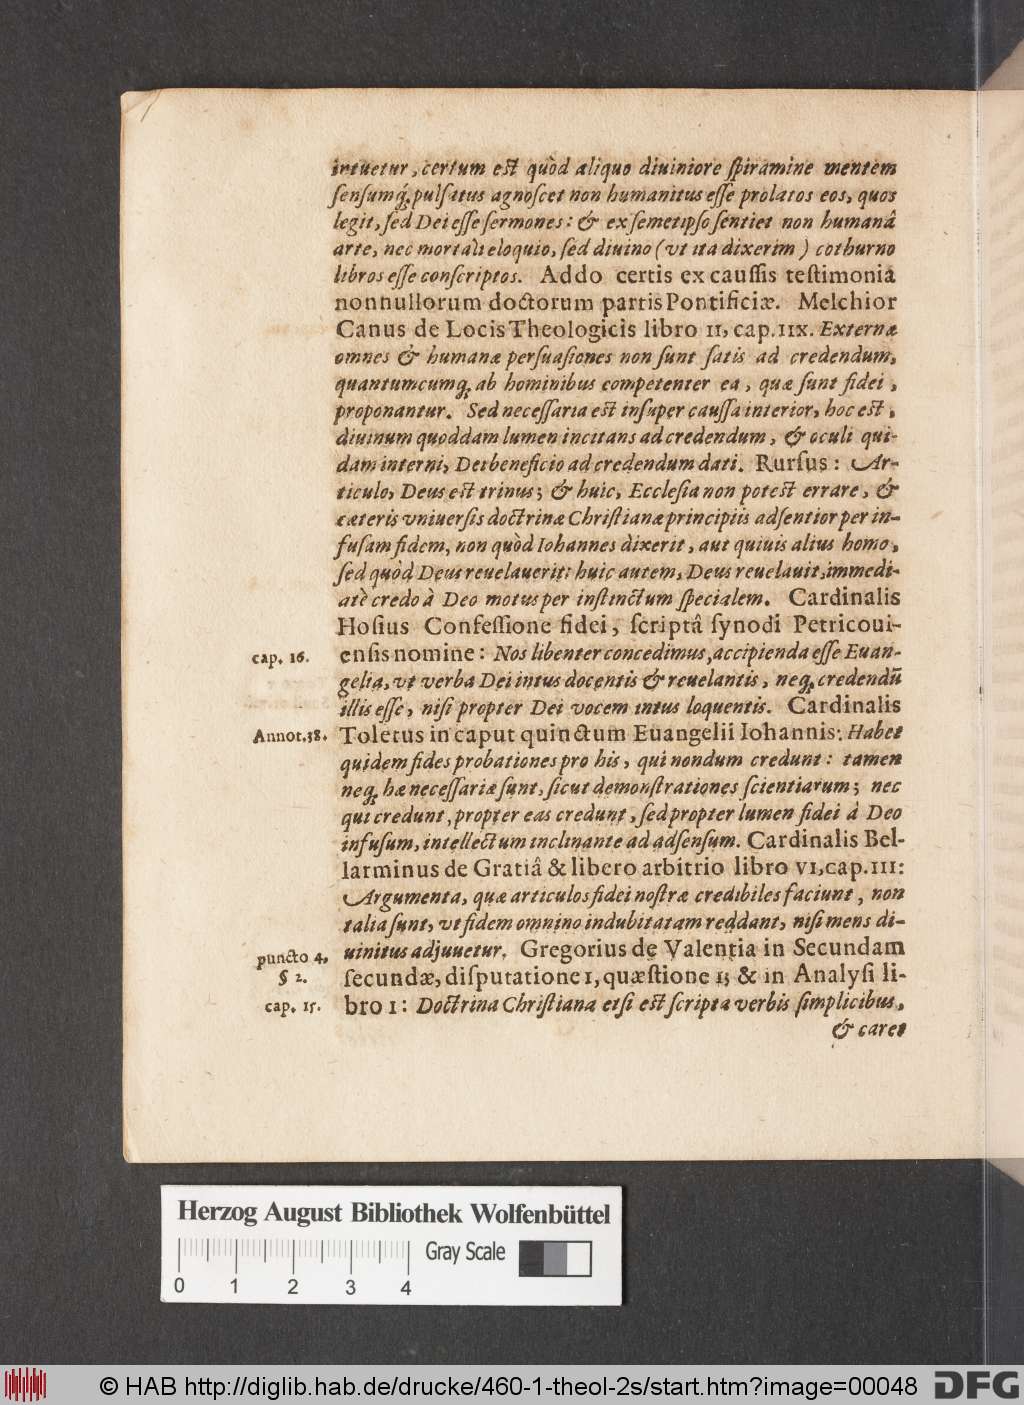 intuetur, certum est quòd aliquo diuiniore spiramine mentem
sensumq́; pulsatus agnoscet non humanitus esse prolatos eos, quos
legit, sed Dei esse sermones: & ex semetipso sentiet non humanâ
arte, nec mortali eloquio, sed diuino (vt ita dixerim) cothurno
libros esse conscriptos. Addo certis ex caussis testimonia
nonnullorum doctorum partis Pontificiæ. Melchior
Canus de Locis Theologicis libro II, cap. IIX. Externæ
omnes & humanæ persuasiones non sunt satis ad credendum,
quantumcumq́; ab hominibus competenter ea, quæ sunt fidei,
proponantur. Sed necessaria est insuper caussa interior, hoc est,
diuinum quoddam lumen incitans ad credendum, & oculi qui-
dam interni, Dei beneficio ad credendum dati. Rursus: Ar-
ticulo, Deus est trinus; & huic, Ecclesia non potest errare, &
cæteris vniuersis doctrinæ Christianæ principiis adsentior per in-
fusam fidem, non quòd Iohannes dixerit, aut quiuis alius homo,
sed quòd Deus reuelauerit: huic autem, Deus reuelauit, immedi-
atè credo à Deo motus per instinctum specialem. Cardinalis
Hosius Confessione fidei, scriptâ synodi Petricoui-
cap. 16. ensis nomine: Nos libenter concedimus, accipienda esse Euan-
gelia, vt verba Dei intus docentis & reuelantis, neq́; credendũ
illis esse, nisi propter Dei vocem intus loquentis. Cardinalis
Annot. 38. Toletus in caput quinctum Euangelii Iohannis: Habet
quidem fides probationes pro his, qui nondum credunt: tamen
neq́; hæ necessariæ sunt, sicut demonstrationes scientiarum; nec
qui credunt, propter eas credunt, sed propter lumen fidei à Deo
infusum, intellectum inclinante ad adsensum. Cardinalis Bel-
larminus de Gratiâ & libero arbitrio libro VI, cap. III:
Argumenta, quæ articulos fidei nostræ credibiles faciunt, non
talia sunt, vt fidem omnino indubitatam reddant, nisi mens di-
puncto 4, uinitus adjuuetur. Gregorius de Valentia in Secundam
§ 2. secundæ, disputatione 1, quæstione 1; & in Analysi li-
cap. 15. bro 1: Doctrina Christiana etsi est scripta verbis simplicibus,
& caret
Herzog August Bibliothek Wolfenbüttel
Gray Scale
0 1 2 3 4
© HAB http://diglib.hab.de/drucke/460-1-theol-2s/start.htm?image=00048
DFG